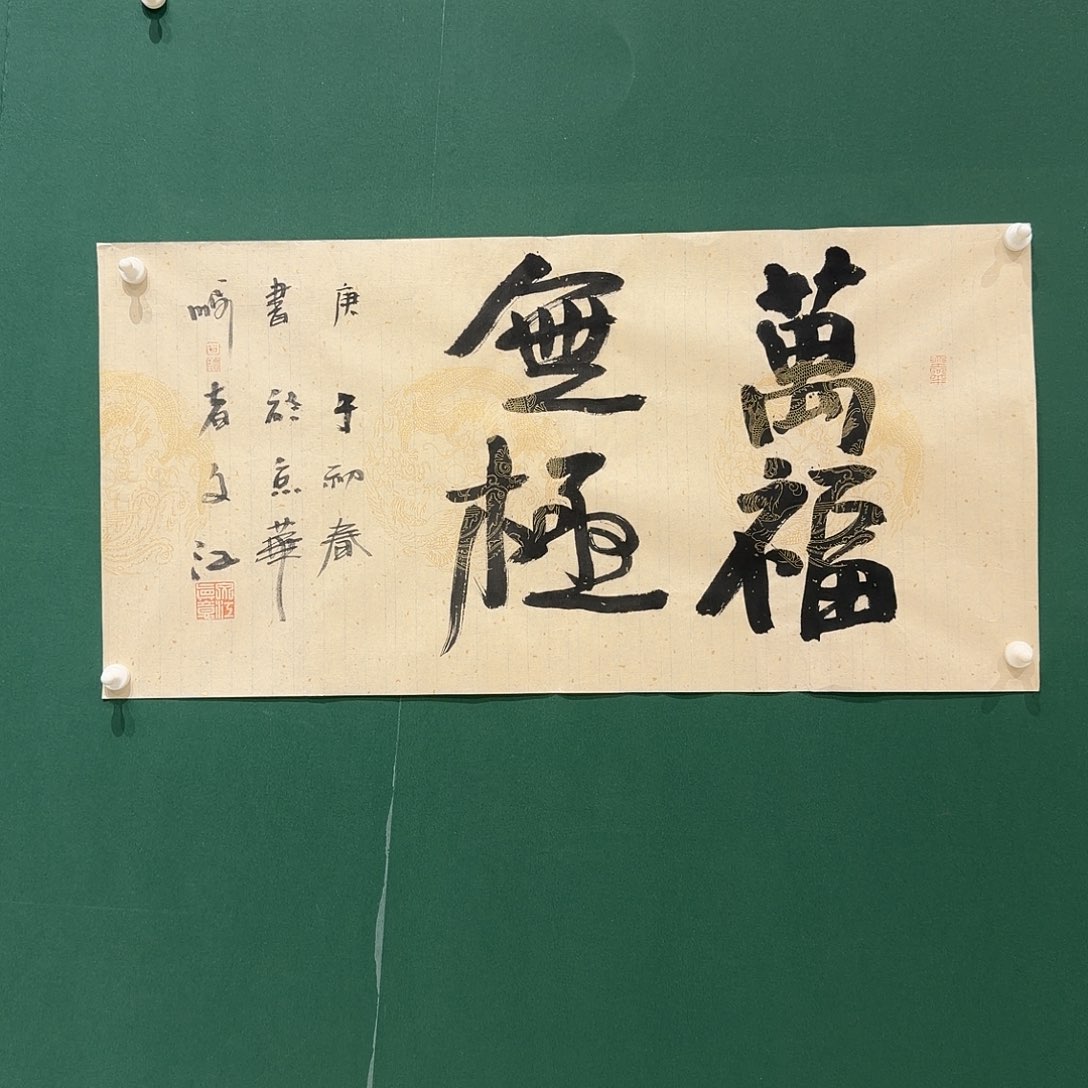 萬福
無極
庚子初春
書於京華
者文江